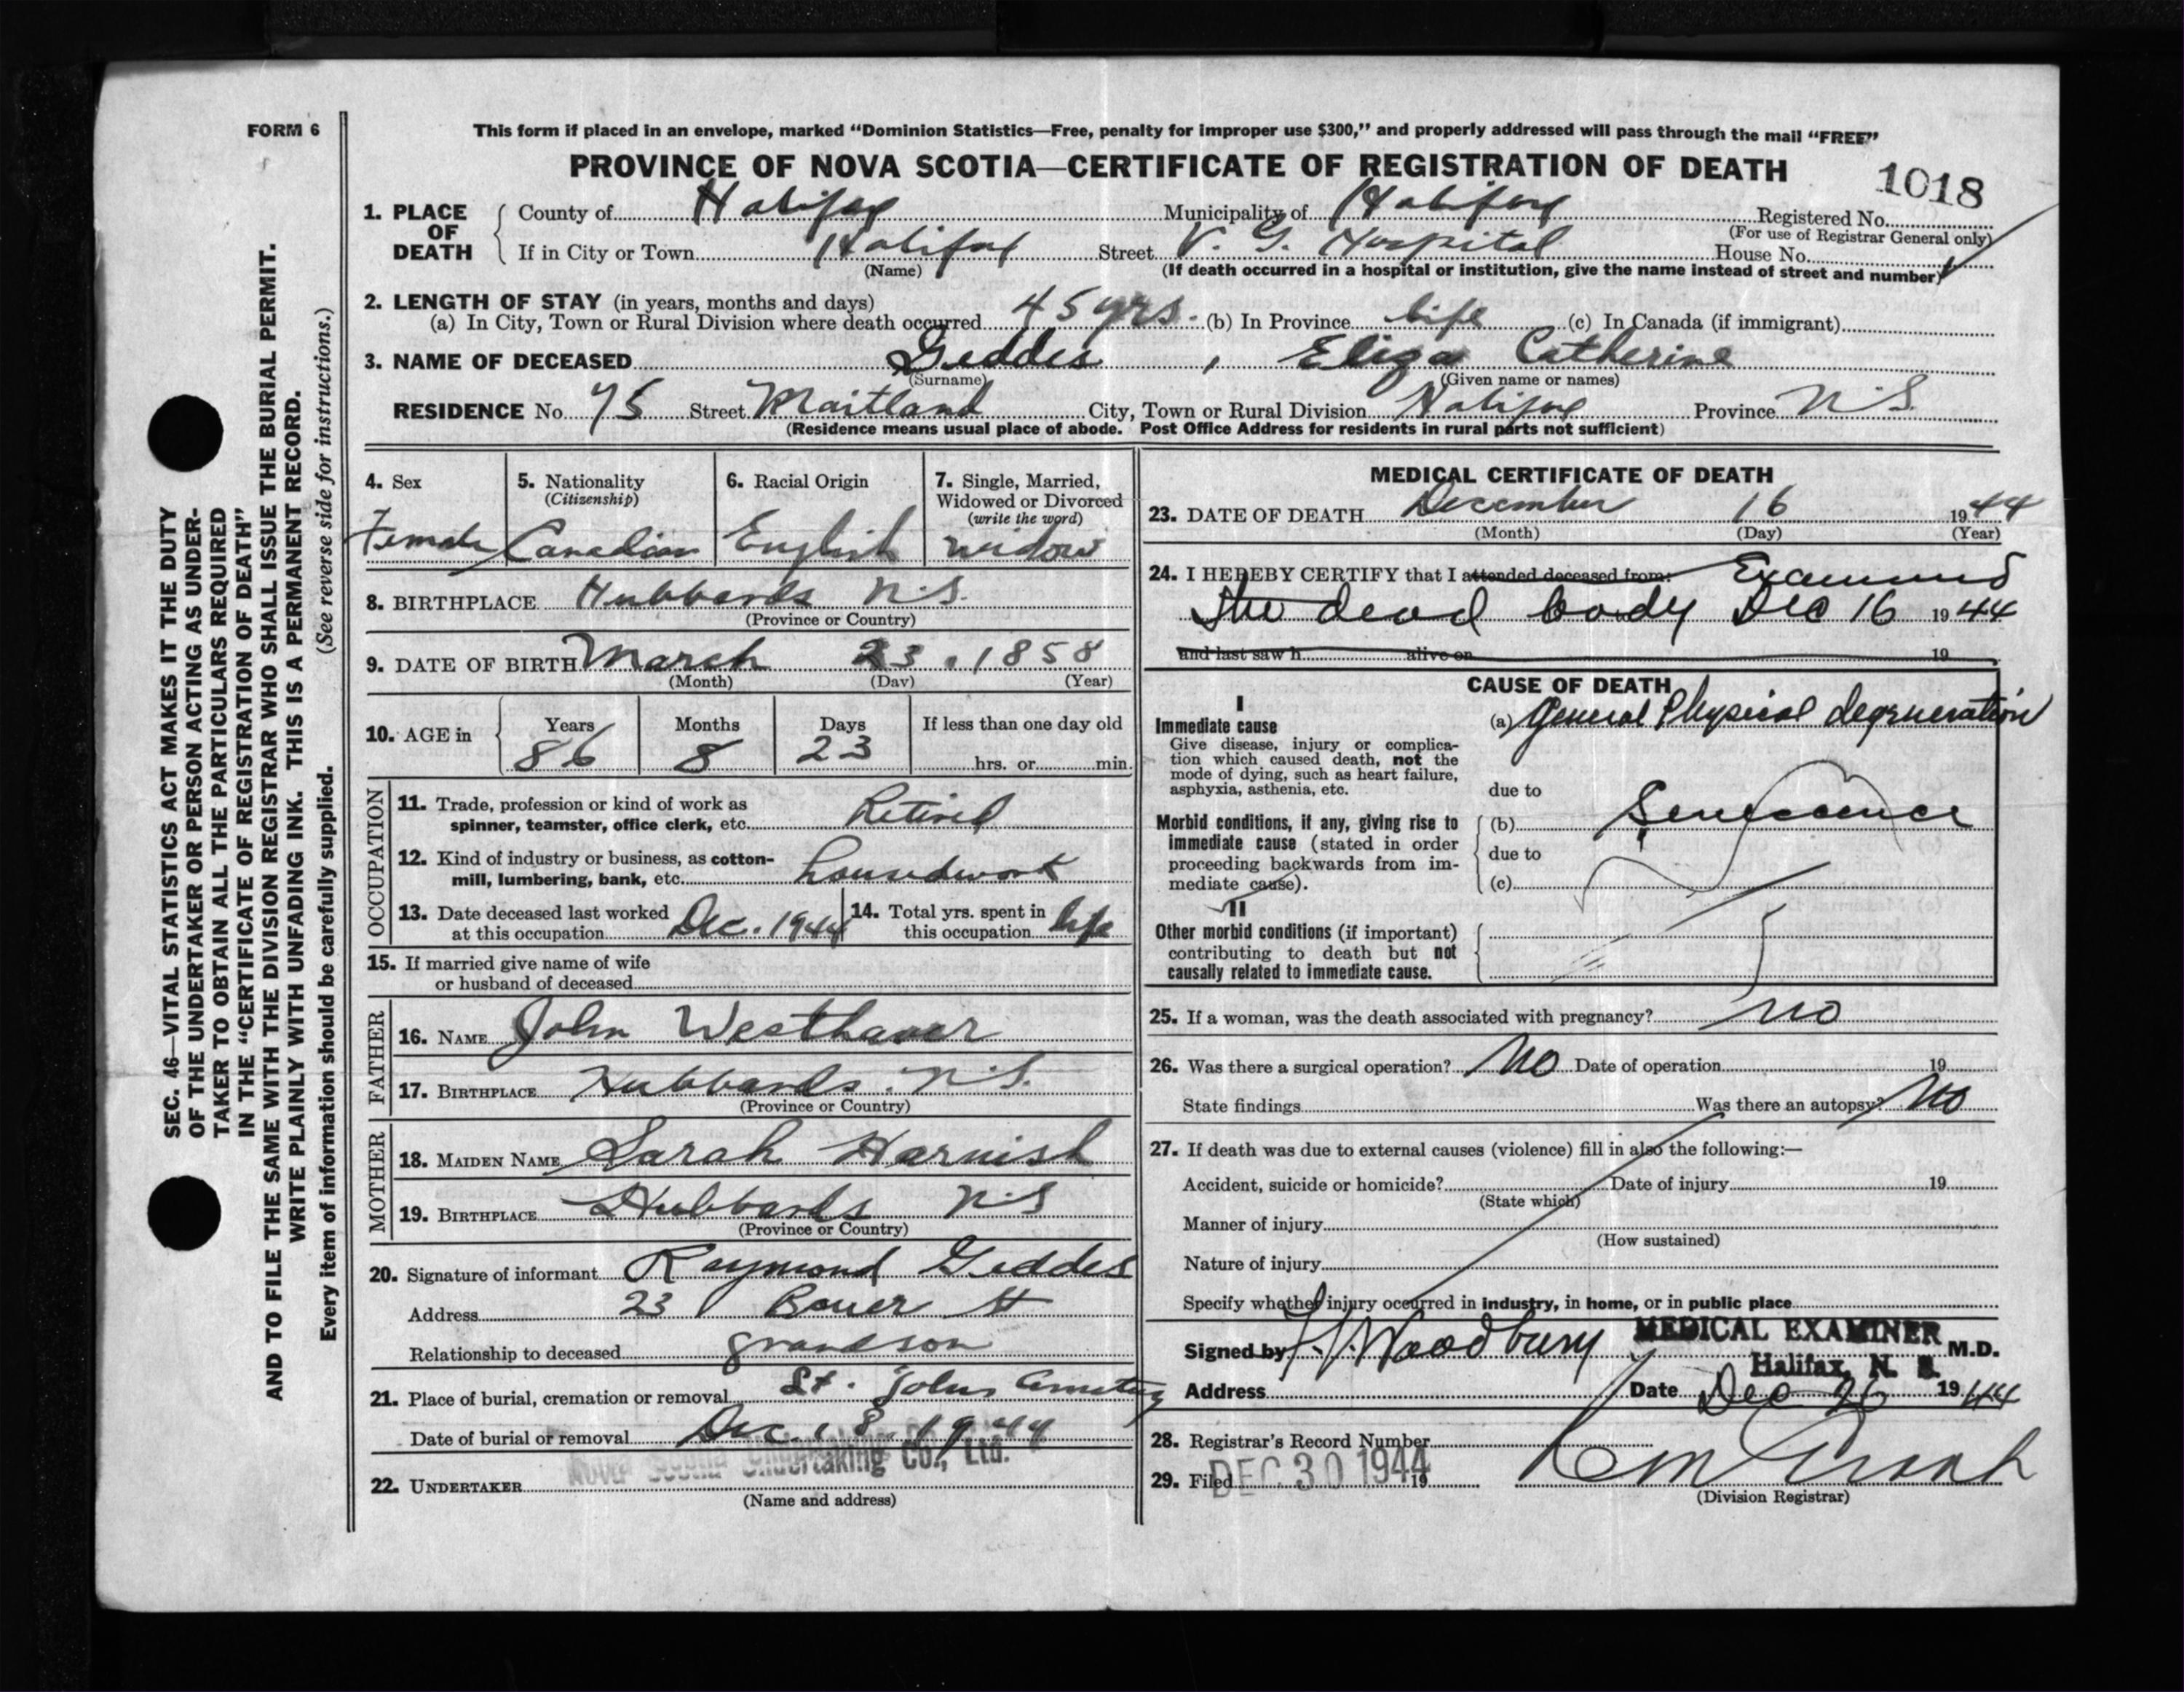 FORM 6
This form if placed in an envelope, marked “Dominion Statistics—Free, penalty for improper use $300,” and properly addressed will pass through the mail “FREE”
PROVINCE OF NOVA SCOTIA—CERTIFICATE OF REGISTRATION OF DEATH
1018
1. PLACE OF DEATH
County of Halifax Municipality of Halifax Registered No.
(For use of Registrar General only)
If in City or Town Halifax Street V. G. Hospital House No.
(Name) (If death occurred in a hospital or institution, give the name instead of street and number)
2. LENGTH OF STAY (in years, months and days)
(a) In City, Town or Rural Division where death occurred 45 yrs. (b) In Province life (c) In Canada (if immigrant)
3. NAME OF DECEASED Geddes , Eliza Catherine
(Surname) (Given name or names)
RESIDENCE No. 75 Street Maitland City, Town or Rural Division Halifax Province N.S.
(Residence means usual place of abode. Post Office Address for residents in rural parts not sufficient)
4. Sex
Female
5. Nationality
(Citizenship)
Canadian
6. Racial Origin
English
7. Single, Married,
Widowed or Divorced
(write the word)
widow
8. BIRTHPLACE Hubbards N.S.
(Province or Country)
9. DATE OF BIRTH March 23, 1858
(Month) (Day) (Year)
10. AGE in
Years Months Days If less than one day old
86 8 23 hrs. or min.
OCCUPATION
11. Trade, profession or kind of work as
spinner, teamster, office clerk, etc. Retired
12. Kind of industry or business, as cotton-
mill, lumbering, bank, etc. housedwork
13. Date deceased last worked
at this occupation Dec. 1944
14. Total yrs. spent in
this occupation life
15. If married give name of wife
or husband of deceased
FATHER
16. NAME John Westhaver
17. BIRTHPLACE Hubbards. N.S.
(Province or Country)
MOTHER
18. MAIDEN NAME Sarah Harnish
19. BIRTHPLACE Hubbards N.S
(Province or Country)
20. Signature of informant Raymond Geddes
Address 23 Bauer St
Relationship to deceased grandson
21. Place of burial, cremation or removal St. Johns Cemetery
Date of burial or removal Dec. 18 1944
Nova Scotia Undertaking Co., Ltd.
22. UNDERTAKER
(Name and address)
MEDICAL CERTIFICATE OF DEATH
23. DATE OF DEATH December 16 1944
(Month) (Day) (Year)
24. I HEREBY CERTIFY that I attended deceased from: Examined
the dead body Dec 16 1944
and last saw h alive on 19
CAUSE OF DEATH
I
Immediate cause
Give disease, injury or complica-
tion which caused death, not the
mode of dying, such as heart failure,
asphyxia, asthenia, etc.
(a) General Physical degeneration
due to
Morbid conditions, if any, giving rise to
immediate cause (stated in order
proceeding backwards from im-
mediate cause).
(b) Senescence
due to
(c)
II
Other morbid conditions (if important)
contributing to death but not
causally related to immediate cause.
25. If a woman, was the death associated with pregnancy? no
26. Was there a surgical operation? No Date of operation 19
State findings Was there an autopsy? No
27. If death was due to external causes (violence) fill in also the following:—
Accident, suicide or homicide? Date of injury 19
(State which)
Manner of injury
(How sustained)
Nature of injury
Specify whether injury occurred in industry, in home, or in public place
Signed by Woodbury MEDICAL EXAMINER M.D.
Halifax, N. S.
Address Date Dec 26 1944
28. Registrar's Record Number
29. Filed DEC 30 1944 19
(Division Registrar)
SEC. 46—VITAL STATISTICS ACT MAKES IT THE DUTY
OF THE UNDERTAKER OR PERSON ACTING AS UNDER-
TAKER TO OBTAIN ALL THE PARTICULARS REQUIRED
IN THE “CERTIFICATE OF REGISTRATION OF DEATH”
AND TO FILE THE SAME WITH THE DIVISION REGISTRAR WHO SHALL ISSUE THE BURIAL PERMIT.
WRITE PLAINLY WITH UNFADING INK. THIS IS A PERMANENT RECORD.
Every item of information should be carefully supplied. (See reverse side for instructions.)